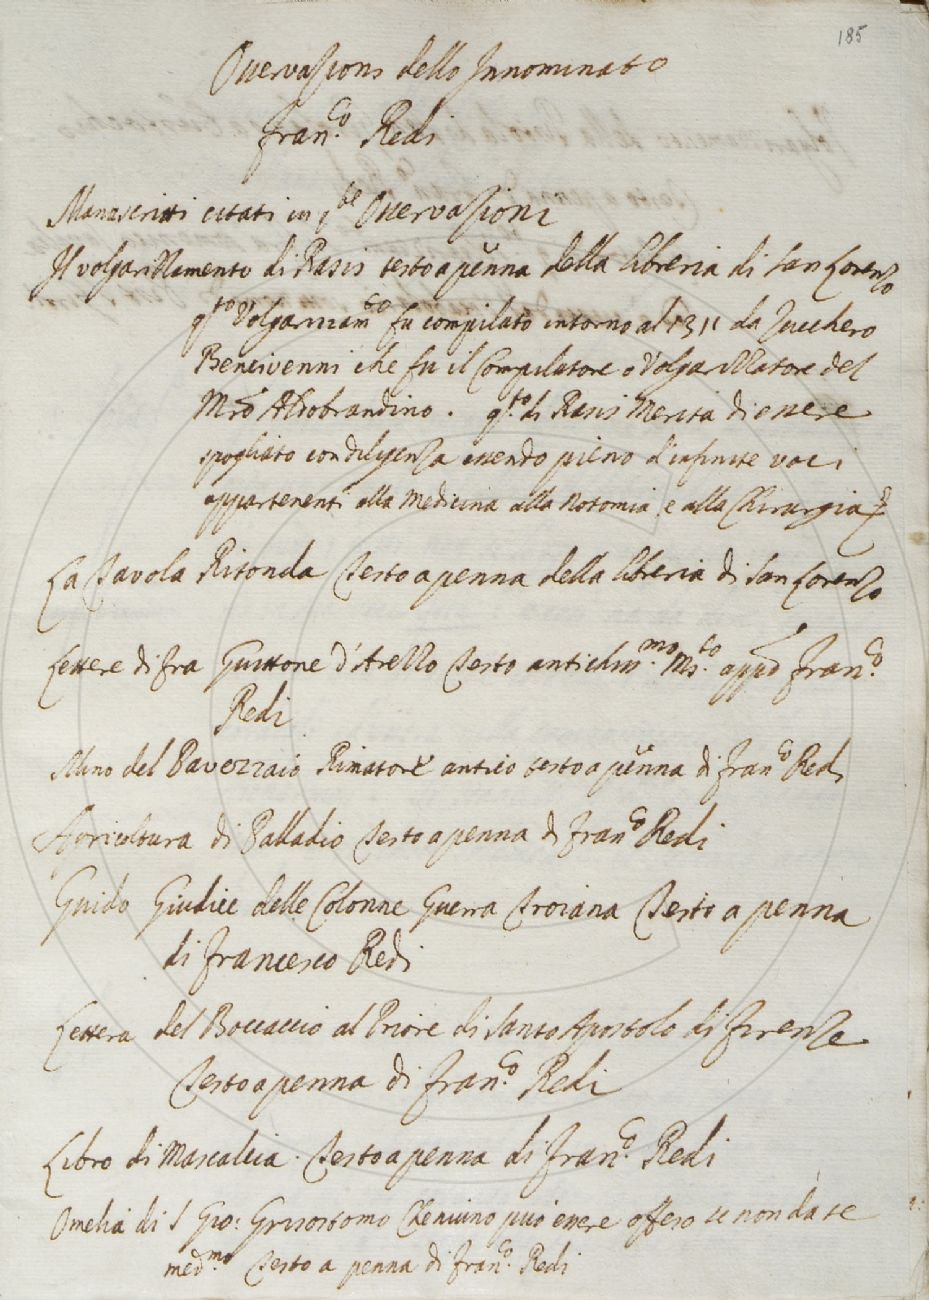 185
Osservazioni dello Innominato
Fran.co Redi
Manuscritti citati in q.te Osservazioni
Il volgarizzamento di Rasis testo a penna della libreria di San Lorenzo
q.to Volgarizzam.to fu compilato intorno al 1311 da Zucchero
Bencivenni che fu il Compilatore o Volgarizzatore del
Mro Aldobrandino. q.to di Rasis Merita di essere
spogliato con diligenza essendo pieno d'infinite voci
appartenenti alla Medicina alla Notomia, e alla Chirurgia
La Tavola Ritonda Testo a penna della libreria di San Lorenzo
Lettere di fra Guittone d'Arezzo Testo antichiss.mo Ms.to appo Fran.co
Redi
Nino del Pavezzaio Rimatore antico testo a penna di Fran.co Redi
Agricoltura di Palladio Testo a penna di Fran.co Redi
Guido Giudice delle Colonne Guerra Troiana Testo a penna
di Francesco Redi
Lettera del Boccaccio al Priore di Santo Apostolo di Firenze
Testo a penna di Fran.co Redi
Libro di Mascalcia. Testo a penna di Fran.co Redi
Omelia di S Gio: Grisostomo Che niuno può essere offeso se non da se
med.mo Testo a penna di Fran.co Redi